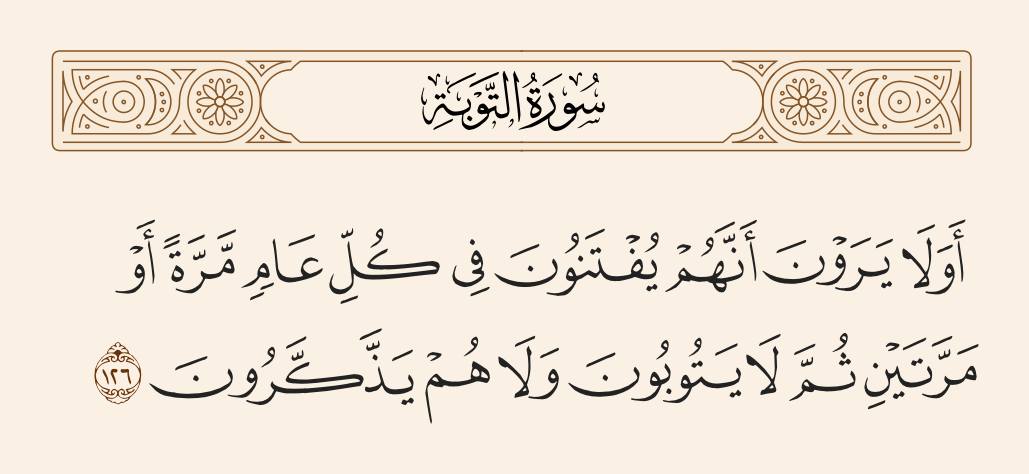 سُورَةُ التَّوْبَةِ
أَوَلَا يَرَوْنَ أَنَّهُمْ يُفْتَنُونَ فِى كُلِّ عَامٍ مَّرَّةً أَوْ
مَرَّتَيْنِ ثُمَّ لَا يَتُوبُونَ وَلَا هُمْ يَذَّكَّرُونَ ١٢٦